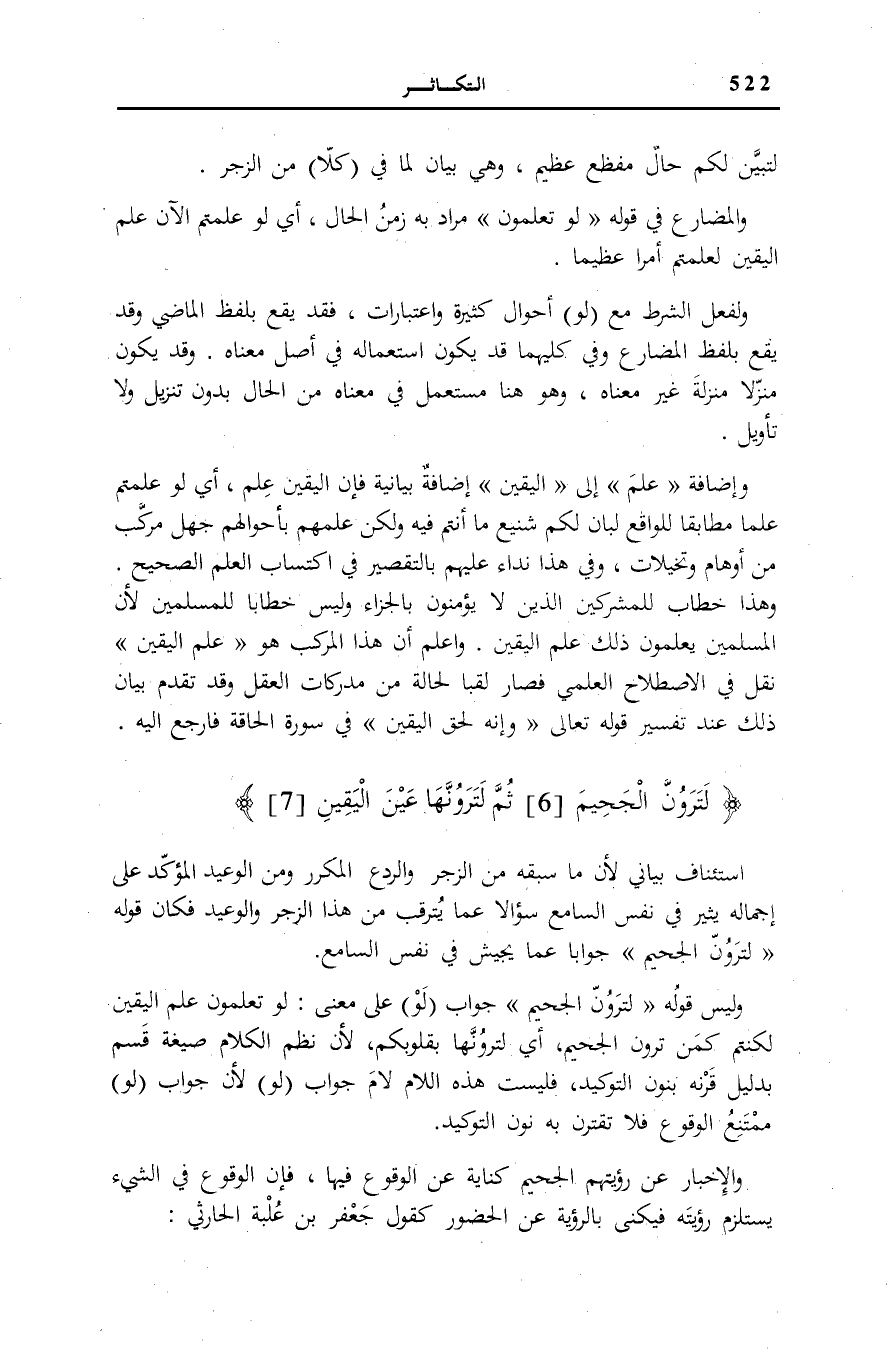 522
التكـاثـر
لتبيَّن لكم حالٌ مفظع عظيم ، وهي بيان لما في (كلّا) من الزجر .
والمضارع في قوله « لو تعلمون » مراد به زمنُ الحال ، أي لو علمتم الآن علم
اليقين لعلمتم أمرا عظيما .
ولفعل الشرط مع (لو) أحوال كثيرة واعتبارات ، فقد يقع بلفظ الماضي وقد
يقع بلفظ المضارع وفي كليهما قد يكون استعماله في أصل معناه . وقد يكون
منزّلا منزلةَ غير معناه ، وهو هنا مستعمل في معناه من الحال بدون تنزيل ولا
تأويل .
وإضافة « علمَ » إلى « اليقين » إضافةٌ بيانية فإن اليقين عِلم ، أي لو علمتم
علما مطابقا للواقع لبان لكم شنيع ما أنتم فيه ولكن علمهم بأحوالهم جهل مركَّب
من أوهام وتخيلات ، وفي هذا نداء عليهم بالتقصير في اكتساب العلم الصحيح .
وهذا خطاب للمشركين الذين لا يؤمنون بالجزاء وليس خطابا للمسلمين لأن
المسلمين يعلمون ذلك علم اليقين . واعلم أن هذا المركب هو « علم اليقين »
نقل في الاصطلاح العلمي فصار لقبا لحالة من مدركات العقل وقد تقدم بيان
ذلك عند تفسير قوله تعالى « وإنه لحق اليقين » في سورة الحاقة فارجع اليه .
﴿ لَتَرَوُنَّ الْجَحِيمَ [6] ثُمَّ لَتَرَوُنَّهَا عَيْنَ الْيَقِينِ [7] ﴾
استئناف بياني لأن ما سبقه من الزجر والردع المكرر ومن الوعيد المؤكّد على
إجماله يثير في نفس السامع سؤالا عما يُترقب من هذا الزجر والوعيد فكان قوله
« لترَوُنّ الجحيم » جوابا عما يجيش في نفس السامع.
وليس قولُه « لترَوُنّ الجحيم » جواب (لَوْ) على معنى : لو تعلمون علم اليقين
لكنتم كمَن ترون الجحيم، أي لتروُنَّها بقلوبكم، لأن نظم الكلام صيغة قَسم
بدليل قَرْنه بنون التوكيد، فليست هذه اللام لامَ جواب (لو) لأن جواب (لو)
ممْتَنِعُ الوقوع فلا تقترن به نون التوكيد.
والإِخبار عن رؤيتهم الجحيم كناية عن الوقوع فيها ، فإن الوقوع في الشيء
يستلزم رؤيتَه فيكنى بالرؤية عن الحضور كقول جَعْفر بن عُلْبة الحارثي :